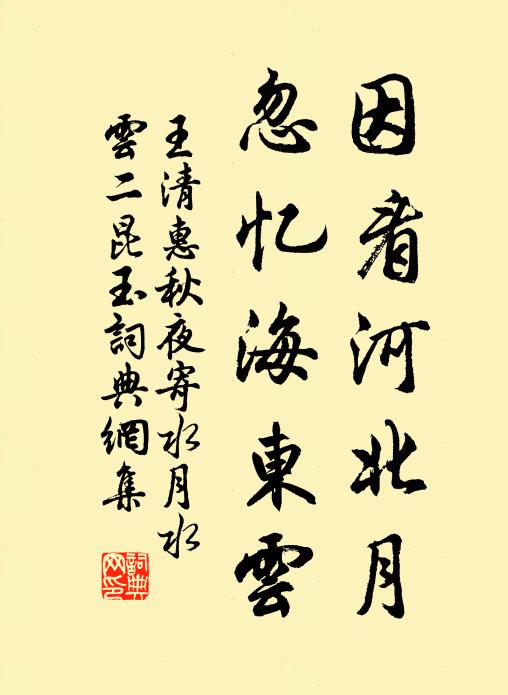 因看河北月
忽忆海東雲
王清惠秋夜寄水月水
雲二昆玉詞典網集
詞典
网印